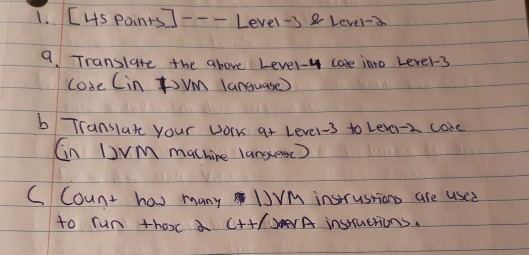 1. [45 points] --- Level-3 & Level-2
a. Translate the above Level-4 code into Level-3
code (in IJVM language)
b Translate your work at Level-3 to Level-2 code
(in IJVM machine language)
C Count how many IJVM instrustions are used
to run those 2 C++/JAVA instructions.